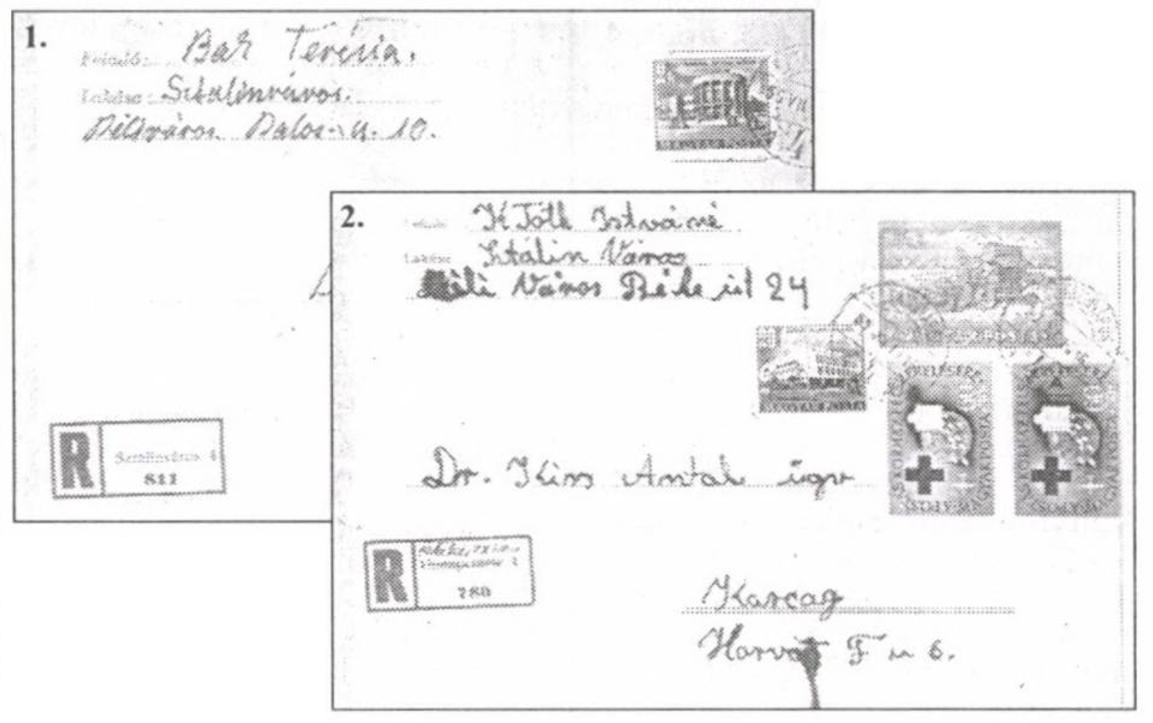 1.
Feladó: Bak Terézia.
Lakása: Sztalinváros.
Déliváros Dalos u. 10.
R
Sztálinváros 4
811
2.
K Tóth Istváné
Lakása: Sztálin Város
Déli Város Béke út 24
Dr. Kiss Antal ügv
R
780
Karcag
Horvát F u 6.